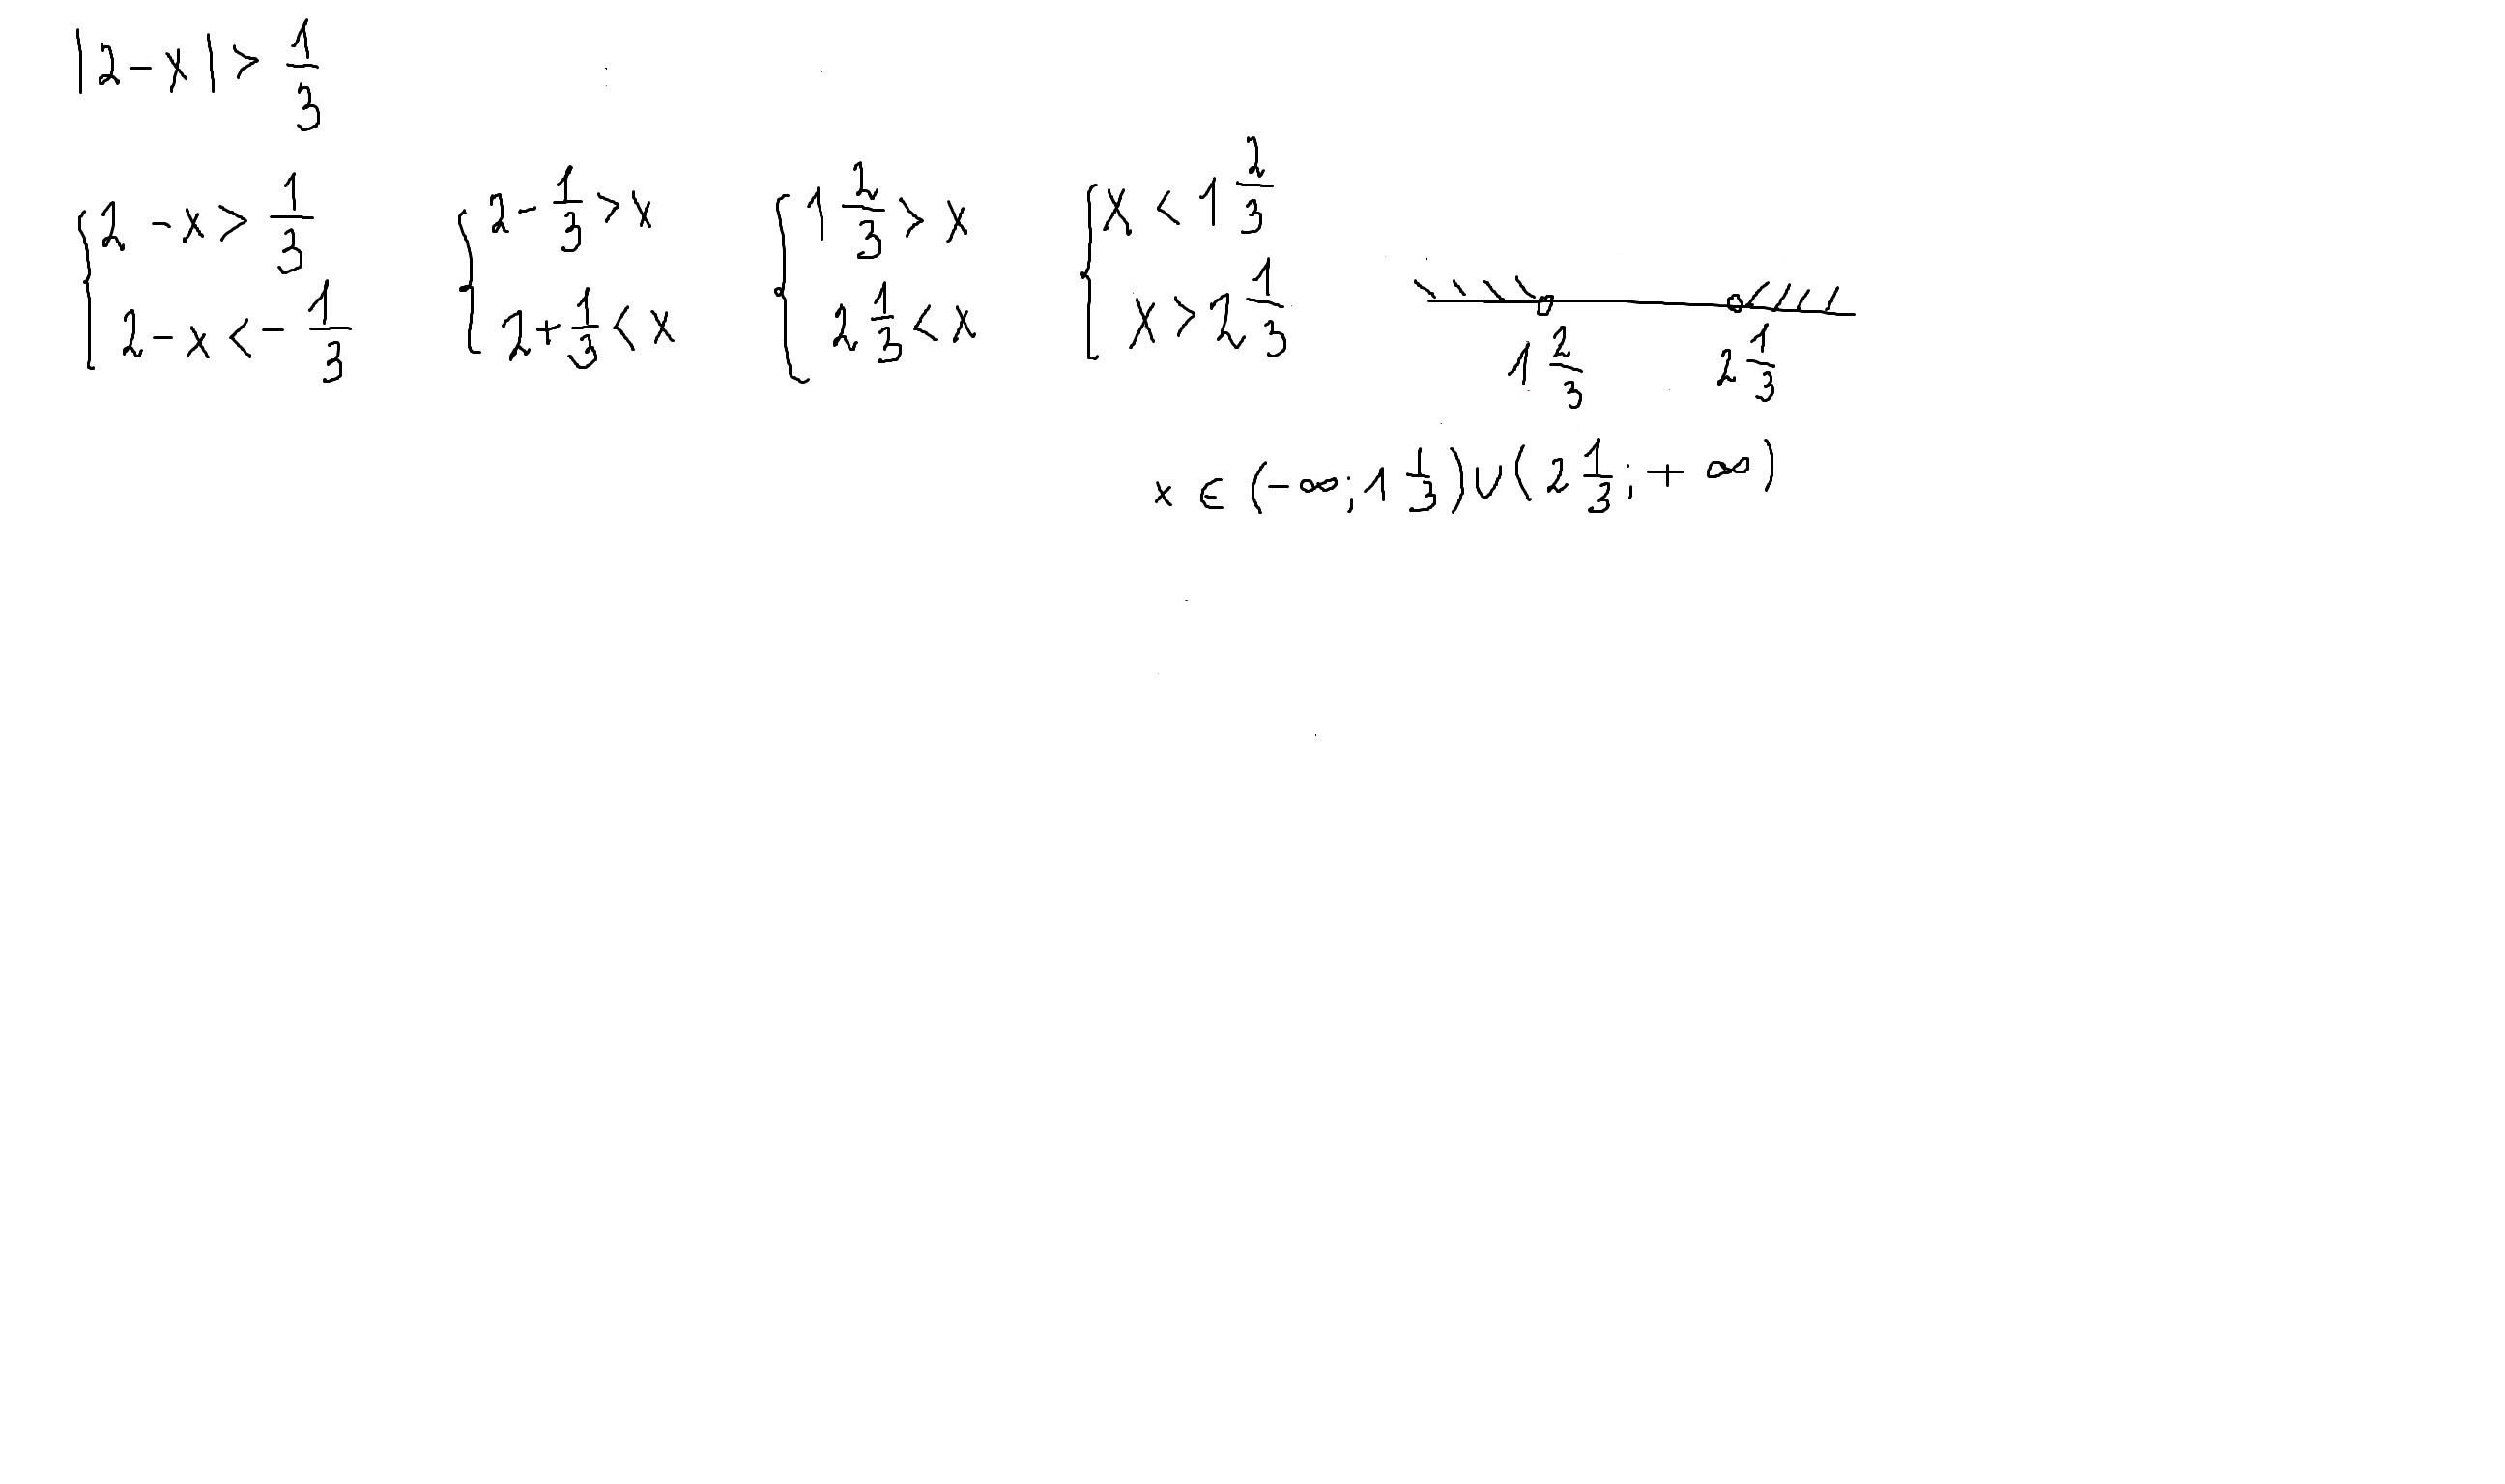 |2-x|> 1/3
{2-x> 1/3
2-x<- 1/3
{2- 1/3 >x
2+ 1/3 <x
{1 2/3 > x
2 1/3 < x
{x < 1 2/3
x > 2 1/3
1 2/3 2 1/3
x ∈ (-∞; 1 1/3) ∪ (2 1/3; +∞)